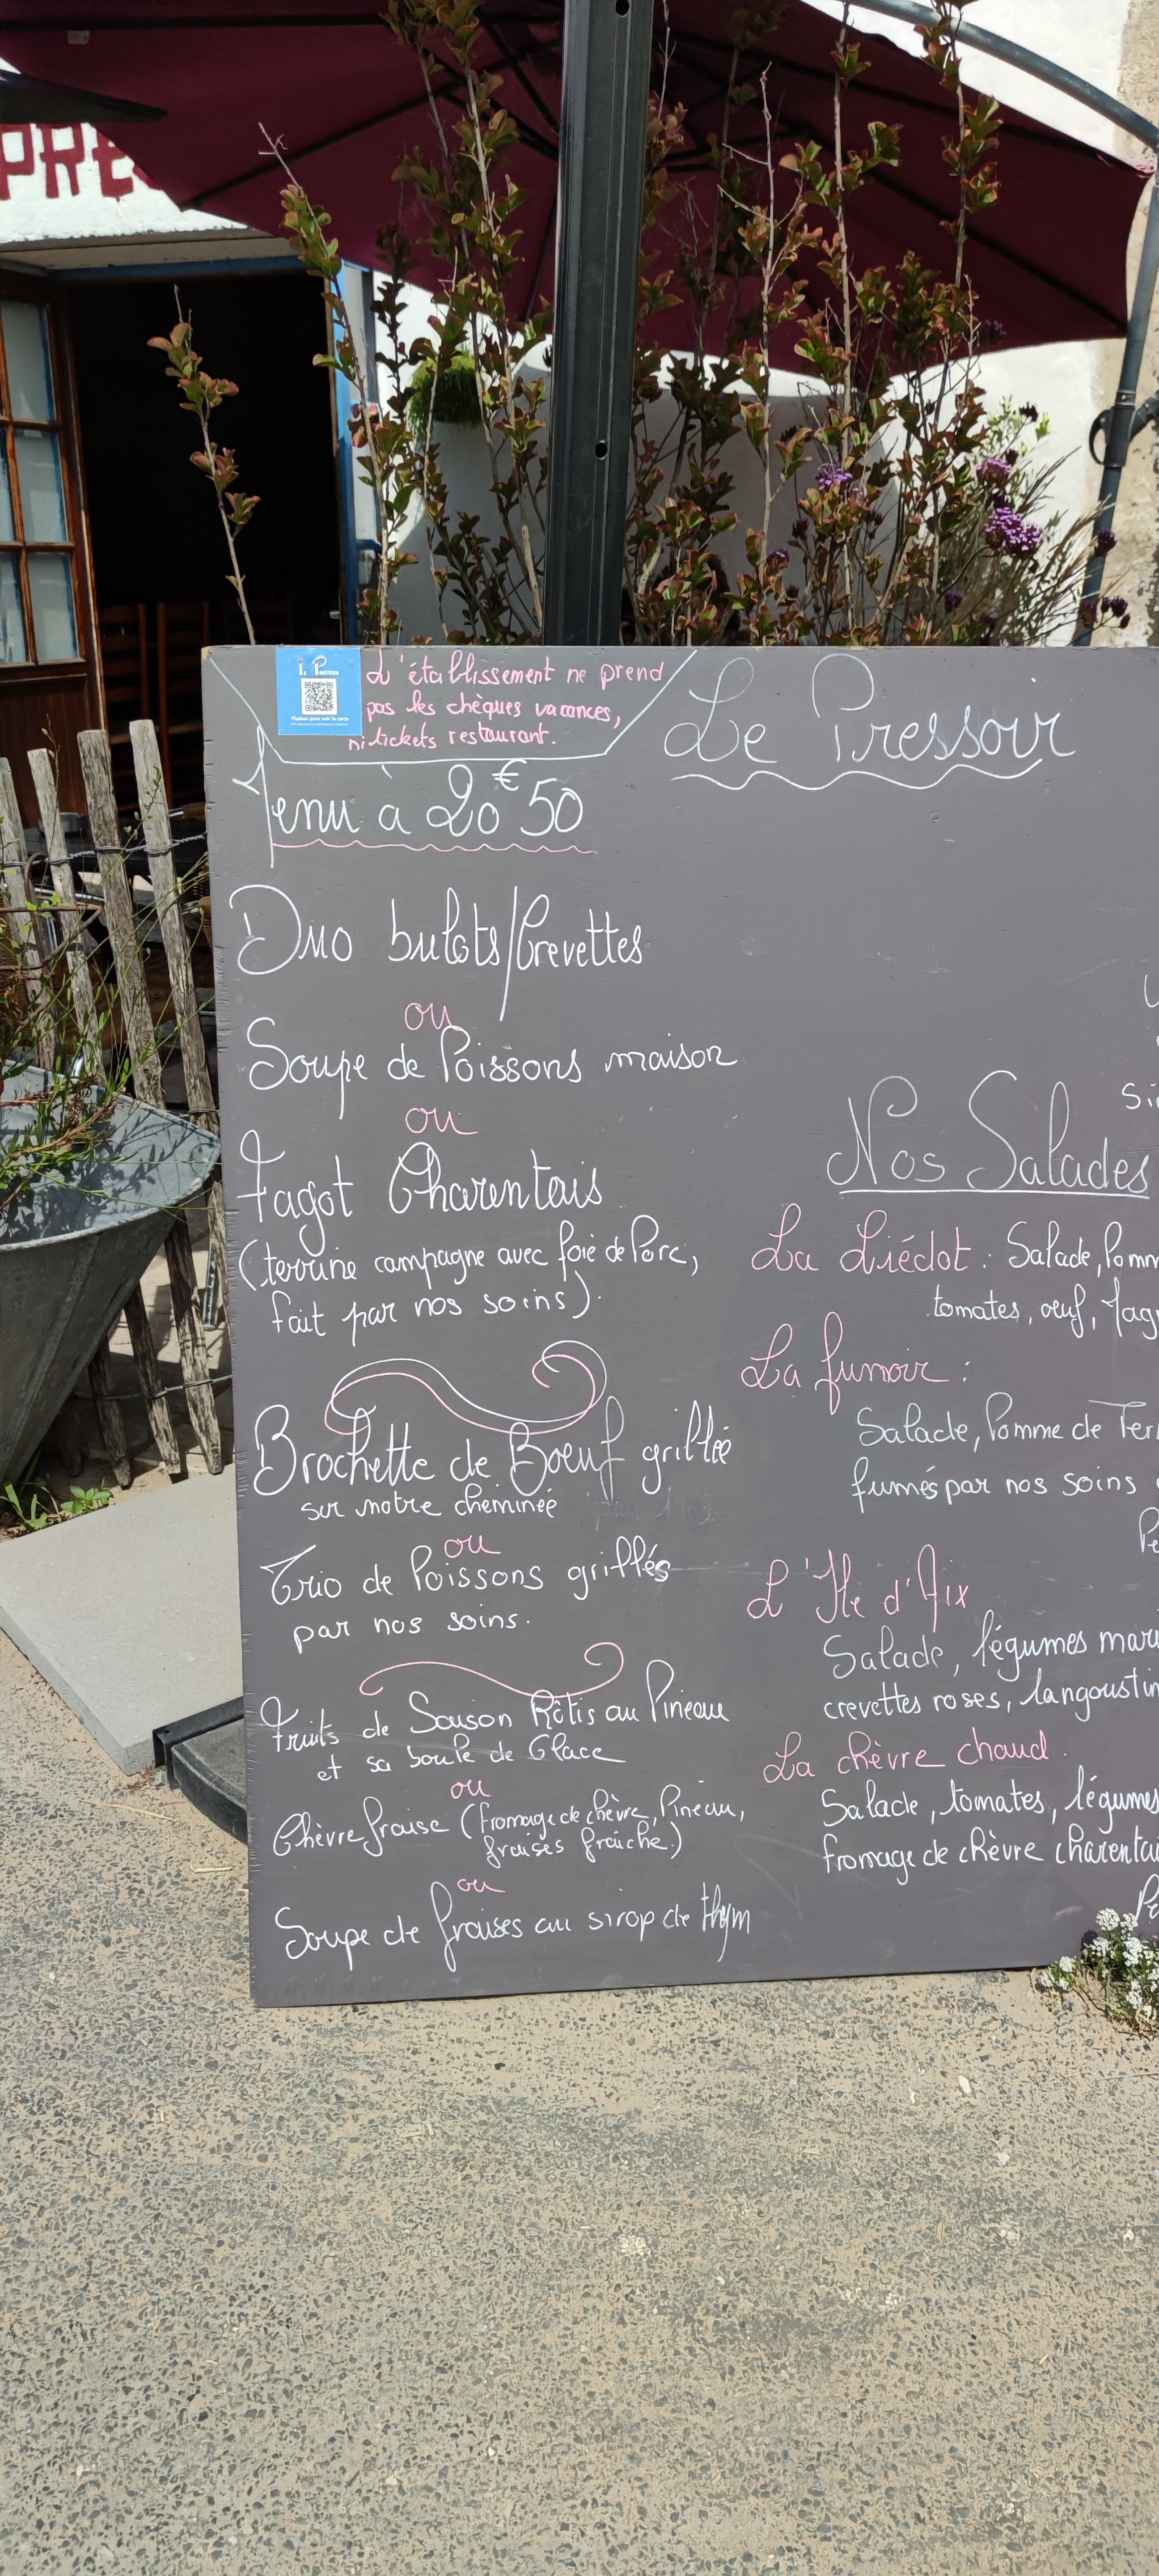 PRE
L'établissement ne prend
pas les chèques vacances,
ni tickets restaurant.
Le Pressoir
Menu à 20€50
Duo bulots/Crevettes
ou
Soupe de Poissons maison
ou
Fagot Charentais
(terrine campagne avec foie de Porc,
fait par nos soins).
Brochette de Boeuf grillée
sur notre cheminée
ou
Trio de Poissons grillés
par nos soins.
Fruits de Saison Rôtis au Pineau
et sa boule de Glace
ou
Chèvre fraise (fromage de chèvre, Pineau,
fraises fraîche)
ou
Soupe de fraises au sirop de thym
Nos Salades
La Liédot : Salade, Pomm
tomates, oeuf, fag
La fumoir :
Salade, Pomme de Terr
fumés par nos soins
L'Ile d'Aix
Salade, légumes mar
crevettes roses, langoustin
La chèvre chaud.
Salade, tomates, légumes
fromage de chèvre charentai